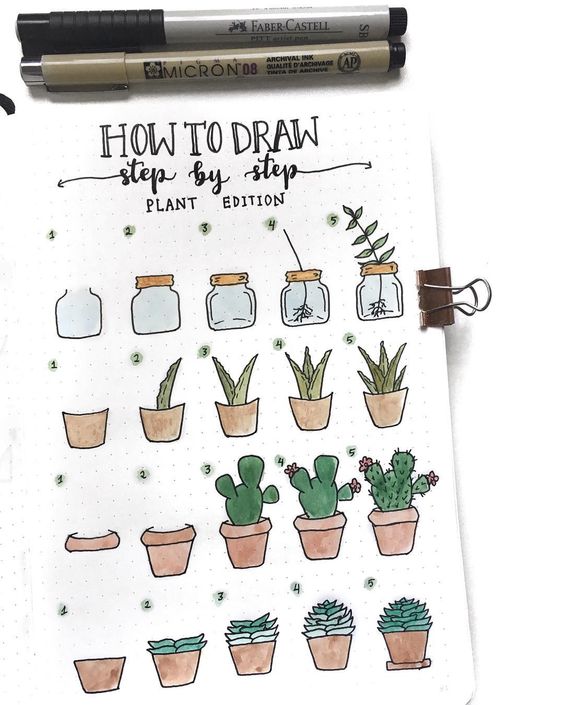 FABER-CASTELL
PITT artist pen
SB
MICRON 08
ARCHIVAL INK
QUALITÉ D'ARCHIVAGE
TINTA DE ARCHIVE
AP
HOW TO DRAW
step by step
PLANT EDITION
1 2 3 4 5
1 2 3 4 5
1 2 3 4 5
1 2 3 4 5